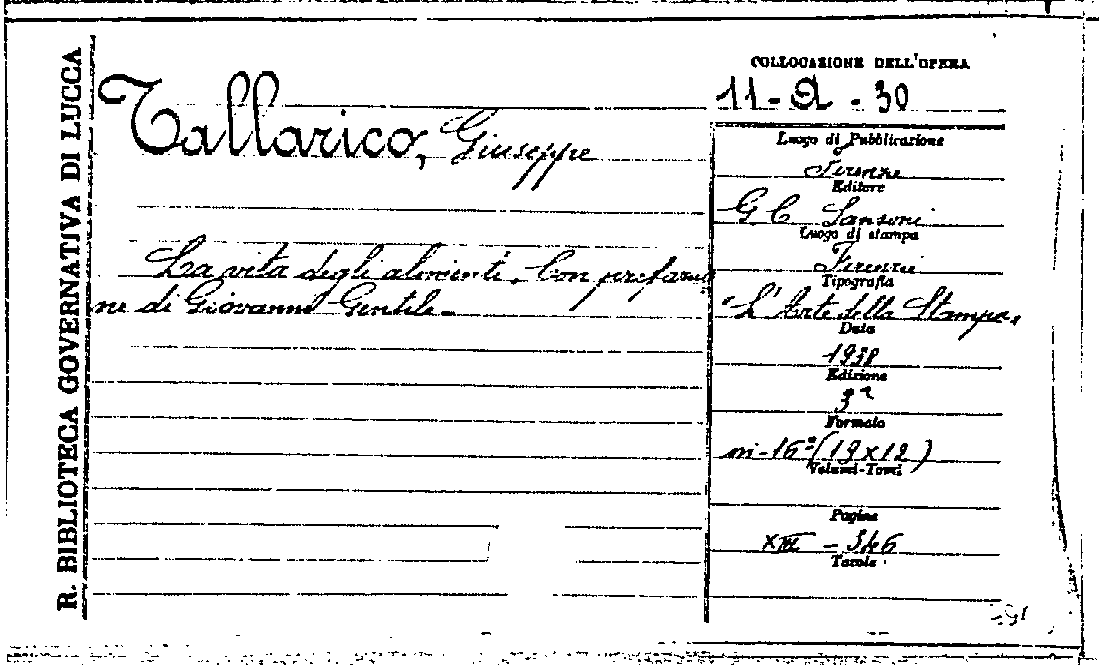 R. BIBLIOTECA GOVERNATIVA DI LUCCA
Tallarico, Giuseppe
La vita degli alimenti. Con prefazio
ne di Giovanni Gentile.
COLLOCAZIONE DELL'OPERA
11 - Q - 30
Luogo di Pubblicazione
Firenze
Editore
G C Sansoni
Luogo di stampa
Firenze
Tipografia
"L'Arte della Stampa"
Data
1938
Edizione
3ª
Formato
in-16º (19x12)
Volumi-Tomi
Pagine
XIII - 346
Tavole